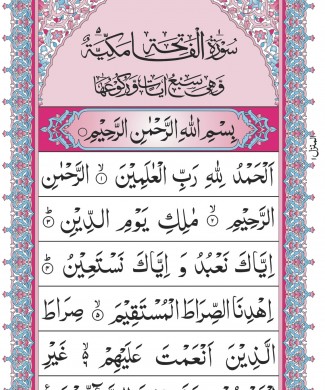 سُوْرَةُ الْفَاتِحَةِ مَكِّيَّةٌ
وَهِيَ سَبْعُ اٰيَاتٍ وَّرُكُوْعُهَا
بِسْمِ اللهِ الرَّحْمٰنِ الرَّحِيْمِ
اَلْحَمْدُ لِلّٰهِ رَبِّ الْعٰلَمِيْنَ ۙ﴿۱﴾ الرَّحْمٰنِ
الرَّحِيْمِ ۙ﴿۲﴾ مٰلِكِ يَوْمِ الدِّيْنِ ؕ﴿۳﴾
اِيَّاكَ نَعْبُدُ وَ اِيَّاكَ نَسْتَعِيْنُ ؕ﴿۴﴾
اِهْدِنَا الصِّرَاطَ الْمُسْتَقِيْمَ ۙ﴿۵﴾ صِرَاطَ
الَّذِيْنَ اَنْعَمْتَ عَلَيْهِمْ ۙ۬﴿۶﴾ غَيْرِ